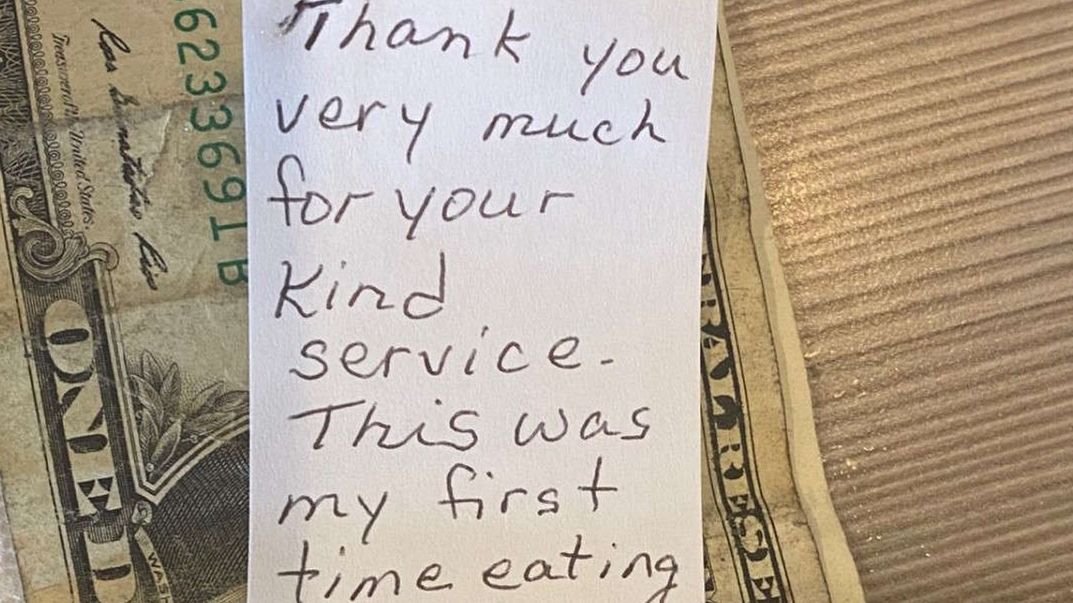 Thank you
very much
for your
kind
service.
This was
my first
time eating
6233691 B
Treasurer of the United States.
ONE
WAS